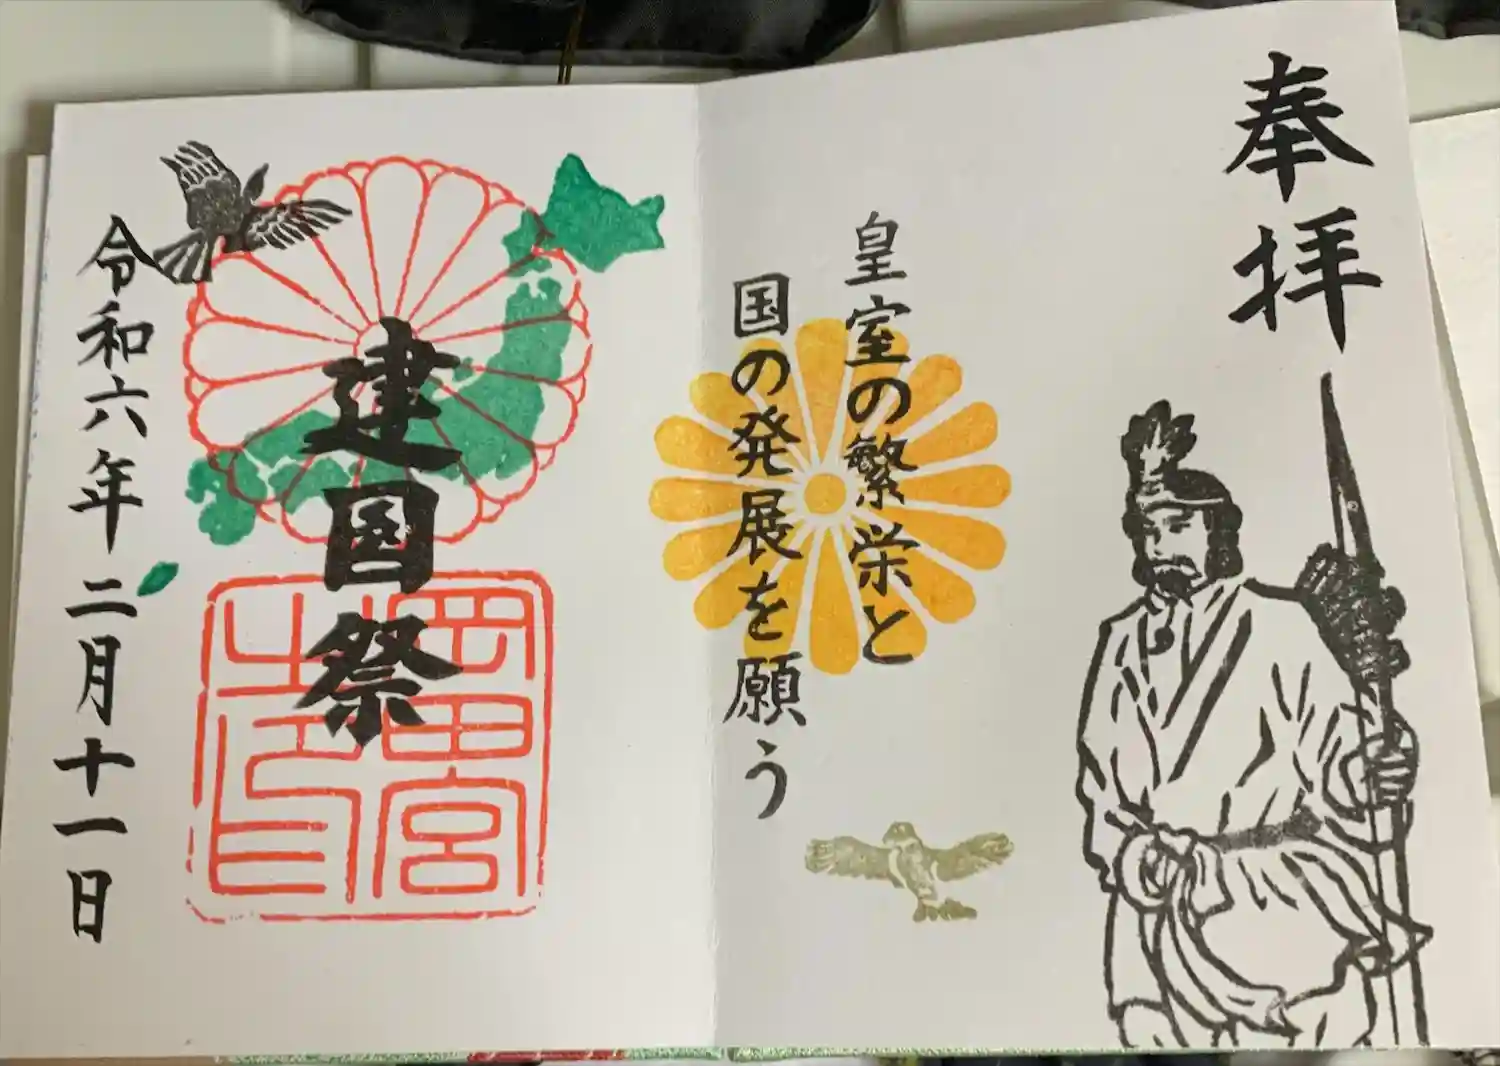 奉拝
皇室の繁栄と
国の発展を願う
建国祭
岡田宮
之印
令和六年二月十一日